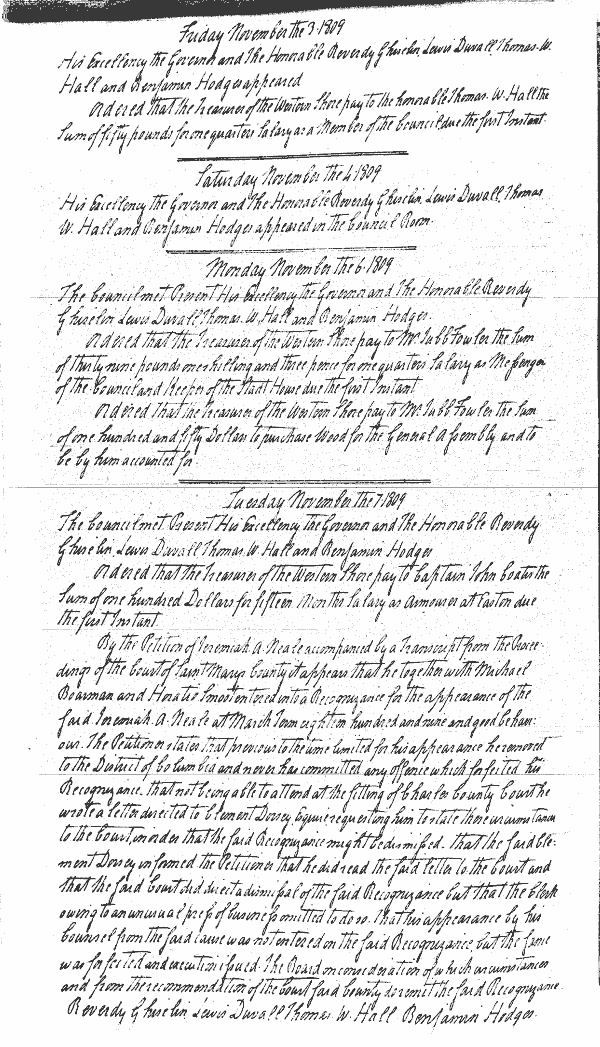 Friday November the 3. 1809
His Excellency the Governor and The Honorable Reverdy Ghiselin, Lewis Duvall, Thomas. W.
Hall and Benjamin Hodges appeared
Ordered that the Treasurer of the Western Shore pay to the honorable Thomas. W. Hall the
Sum of fifty pounds for one quarters Salary as a Member of the Council due the first Instant.
Saturday November the 4. 1809
His Excellency the Governor and The Honorable Reverdy Ghiselin, Lewis Duvall, Thomas
W. Hall and Benjamin Hodges appeared in the Council Room.
Monday November the 6. 1809
The Council met. Present His Excellency the Governor and The Honorable Reverdy
Ghiselin Lewis Duvall, Thomas. W. Hall and Benjamin Hodges.
Ordered that the Treasurer of the Western Shore pay to Mr. Jubb Fowler the Sum
of thirty nine pounds one shilling and three pence for one quarters Salary as Messenger
of the Council and Keeper of the Stadt House due the first Instant
Ordered That the Treasurer of the Western Shore pay to Mr. Jubb Fowler the Sum
of one hundred and fifty Dollars to purchase Wood for the General Assembly and to
be by him accounted for.
Tuesday November the 7. 1809
The Council met. Present His Excellency the Governor and The Honorable Reverdy
Ghiselin, Lewis Duvall Thomas. W. Hall and Benjamin Hodges
Ordered that the Treasurer of the Western Shore pay to Captain John Coats the
Sum of one hundred Dollars for fifteen Months Salary as Armourer at Easton due
the first Instant.
By the Petition of Jeremiah. A. Neale accompanied by a Transcript from the Procee-
dings of the Court of Saint Marys County it appears that he together with Michael
Boarman and Horatio entered into a Recognizance for the appearance of the
said Jeremiah. A. Neale at March Term eighteen hundred and nine and good behavi:
our. The Petitioner states that previous to the time limited for his appearance he removed
to the District of Columbia and never has committed any offence which forfeited his
Recognizance. that not being able to attend at the sitting of Charles County Court he
wrote a letter directed to Clement Dorsey Esquire requesting him to state these circumstances
to the Court, in order that the said Recognizance might be dismissed. That the said Cle-
ment Dorsey informed the Petitioner that he did read the said letter to the Court and
that the said Court did direct a dismissal of the said Recognizance but that the Clerk
owing to an unusual press of business omitted to do so. That his appearance by his
Counsel from the said cause was not entered on the said Recognizance, but the same
was forfeited and execution issued. The Board on consideration of which circumstances
and from the recommendation of the Court said County do remit the said Recognizance.
Reverdy Ghiselin, Lewis Duvall Thomas. W. Hall Benjamin Hodges.